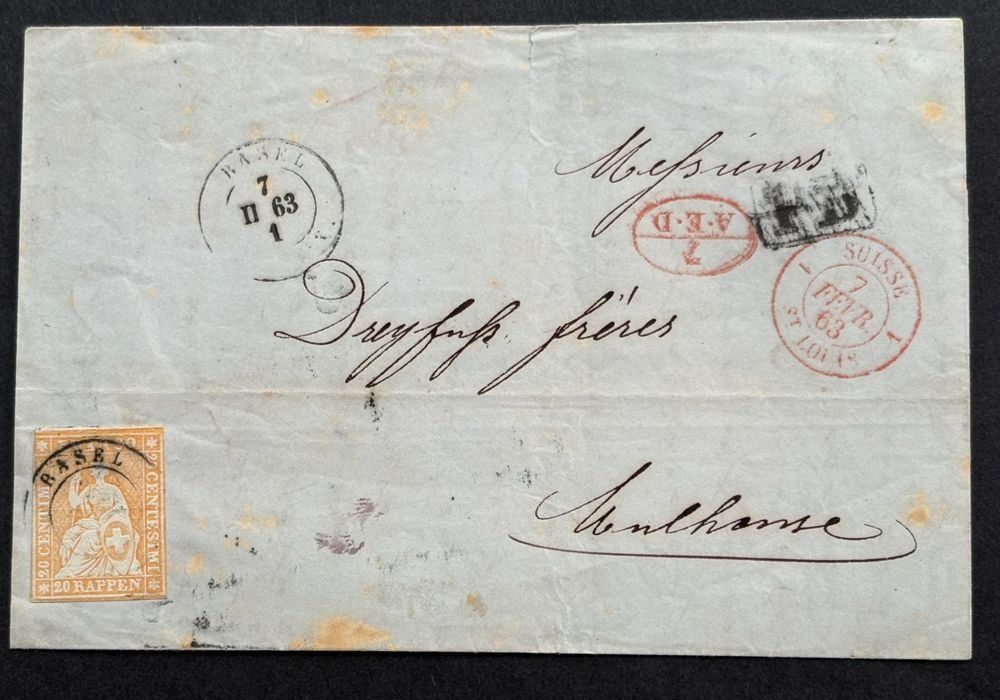 BASEL
7
II 63
1
Messieurs
A.E.D.
PD
SUISSE
1 7 1
FEVR.
63
ST LOUIS
Dreyfuß frères
Mulhouse
FRANCO
BASEL
20 CENTIM
2 CENTESIMI
20 RAPPEN